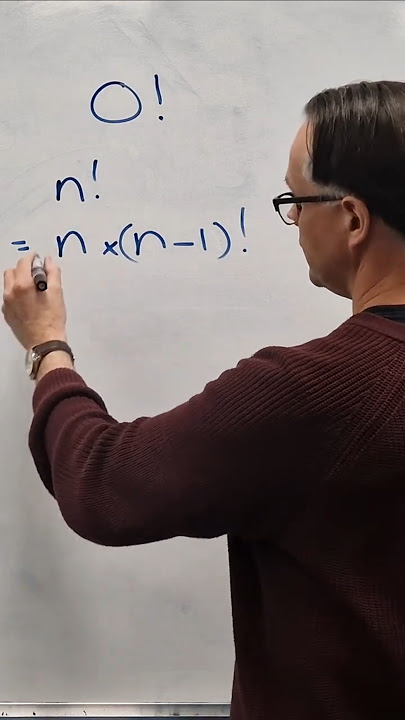 0!
n!
= n ×(n-1)!